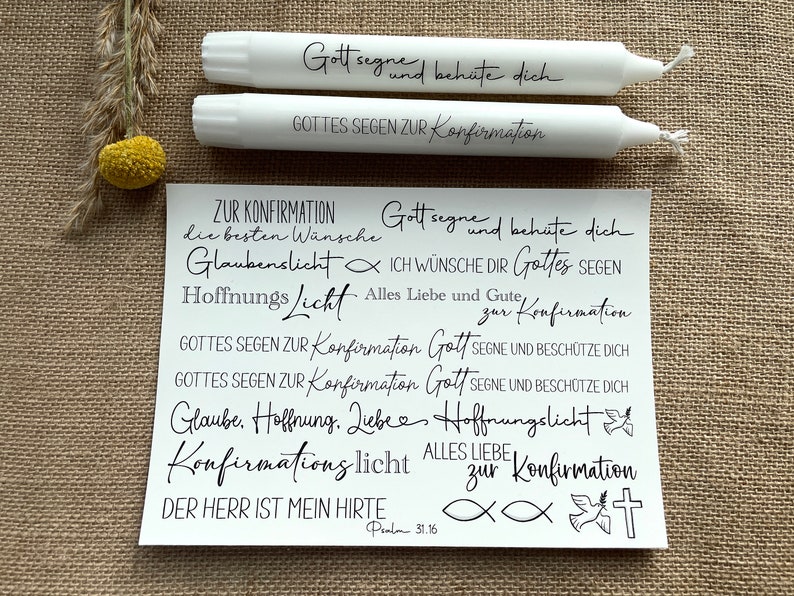 Gott segne
und behüte dich
GOTTES SEGEN ZUR Konfirmation
ZUR KONFIRMATION
die besten Wünsche
Gott segne
und behüte dich
Glaubenslicht
ICH WÜNSCHE DIR Gottes SEGEN
Hoffnungs Licht
Alles Liebe und Gute
zur Konfirmation
GOTTES SEGEN ZUR Konfirmation
Gott SEGNE UND BESCHÜTZE DICH
GOTTES SEGEN ZUR Konfirmation
Gott SEGNE UND BESCHÜTZE DICH
Glaube, Hoffnung, Liebe
Hoffnungslicht
Konfirmationslicht
ALLES LIEBE
zur Konfirmation
DER HERR IST MEIN HIRTE
Psalm 31.16